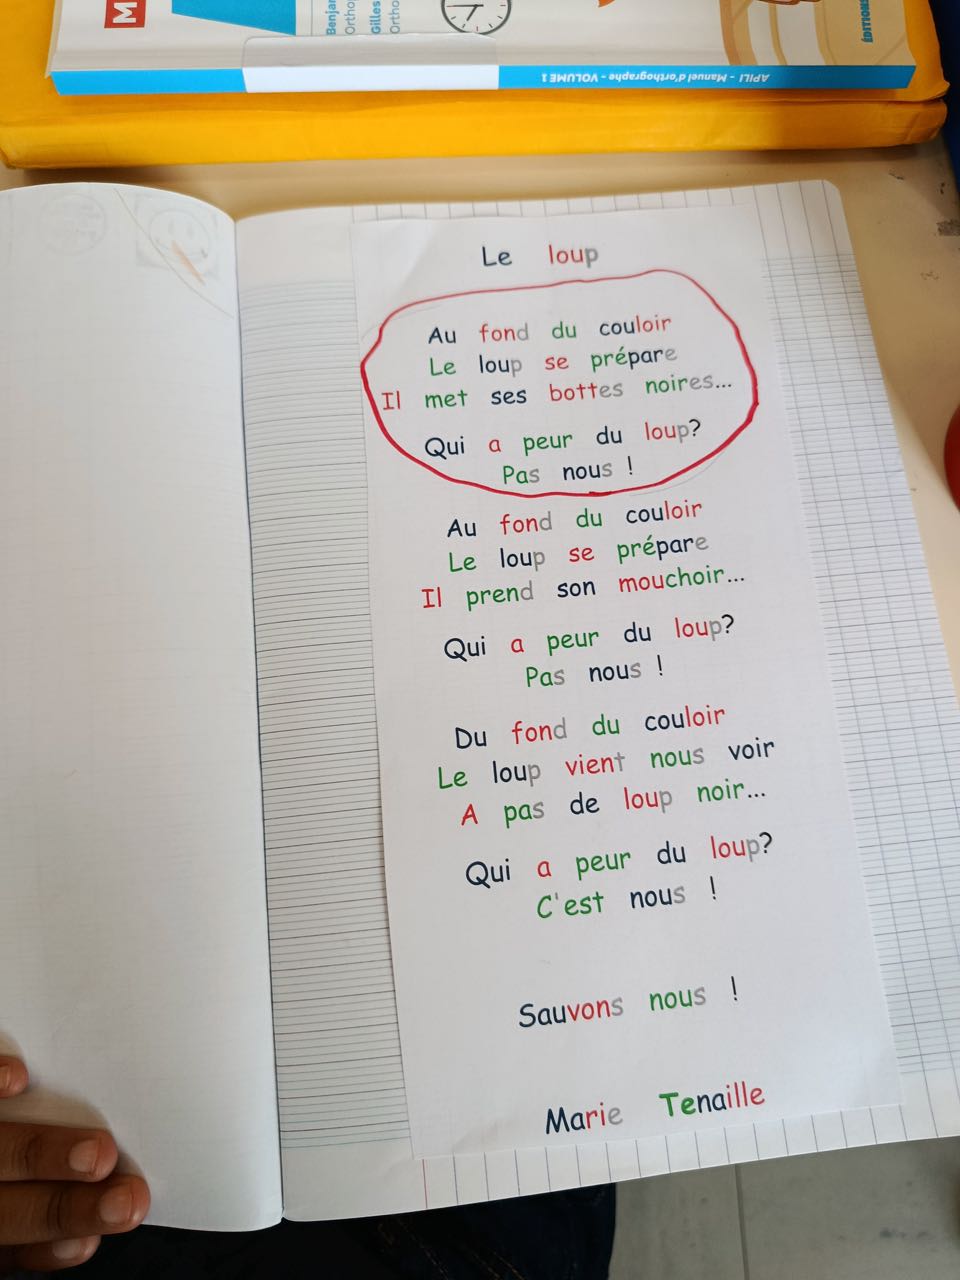 M
Benjam
Ortho
Gilles
Ortho
ÉDITIONS
APILI - Manuel d'orthographe - VOLUME 1
Le loup
Au fond du couloir
Le loup se prépare
Il met ses bottes noires...
Qui a peur du loup?
Pas nous !
Au fond du couloir
Le loup se prépare
Il prend son mouchoir...
Qui a peur du loup?
Pas nous !
Du fond du couloir
Le loup vient nous voir
A pas de loup noir...
Qui a peur du loup?
C'est nous !
Sauvons nous !
Marie Tenaille